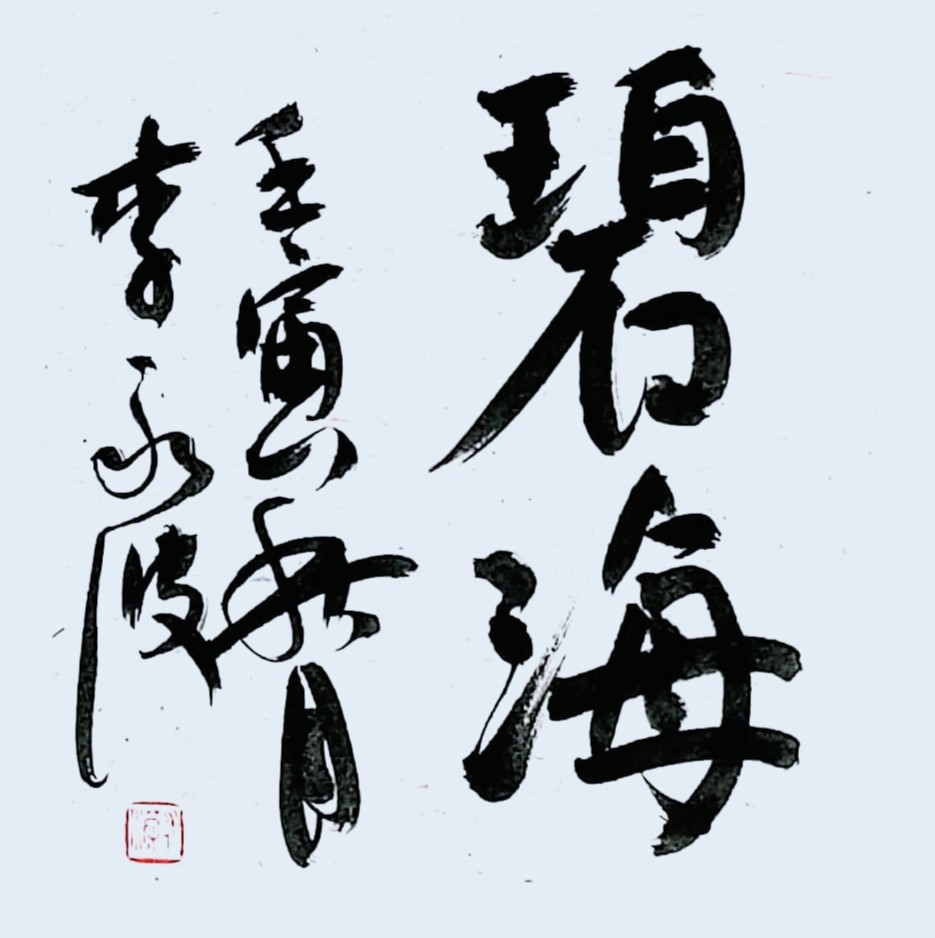 碧海
壬寅秋月
李永波